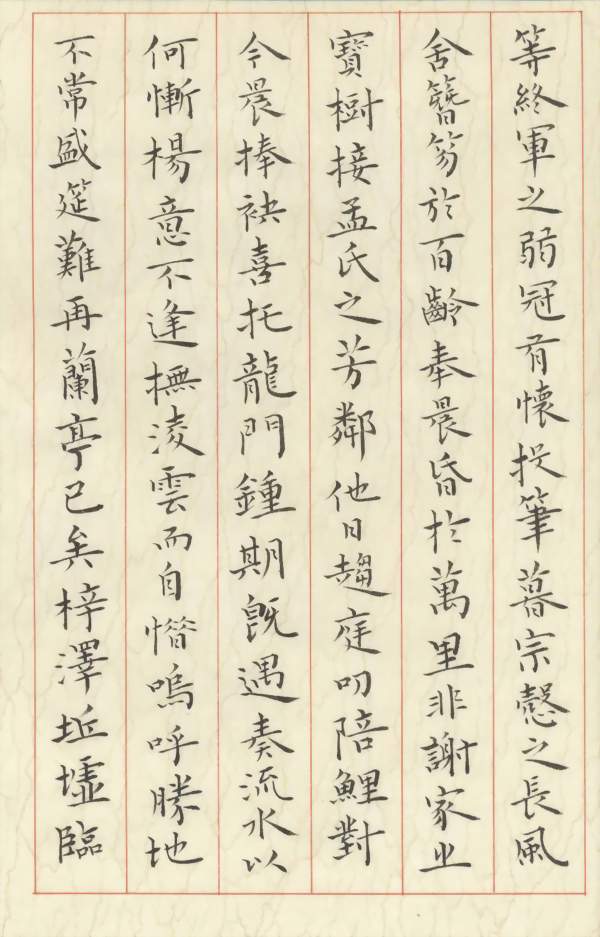 等終軍之弱冠有懷投筆暮宗愨之長風
舍簪笏於百齡奉晨昏於萬里非謝家之
寶樹接孟氏之芳鄰他日趨庭叨陪鯉對
今晨捧袂喜托龍門鍾期既遇奏流水以
何慚楊意不逢撫淩雲而自惜嗚呼勝地
不常盛筵難再蘭亭已矣梓澤坵墟臨